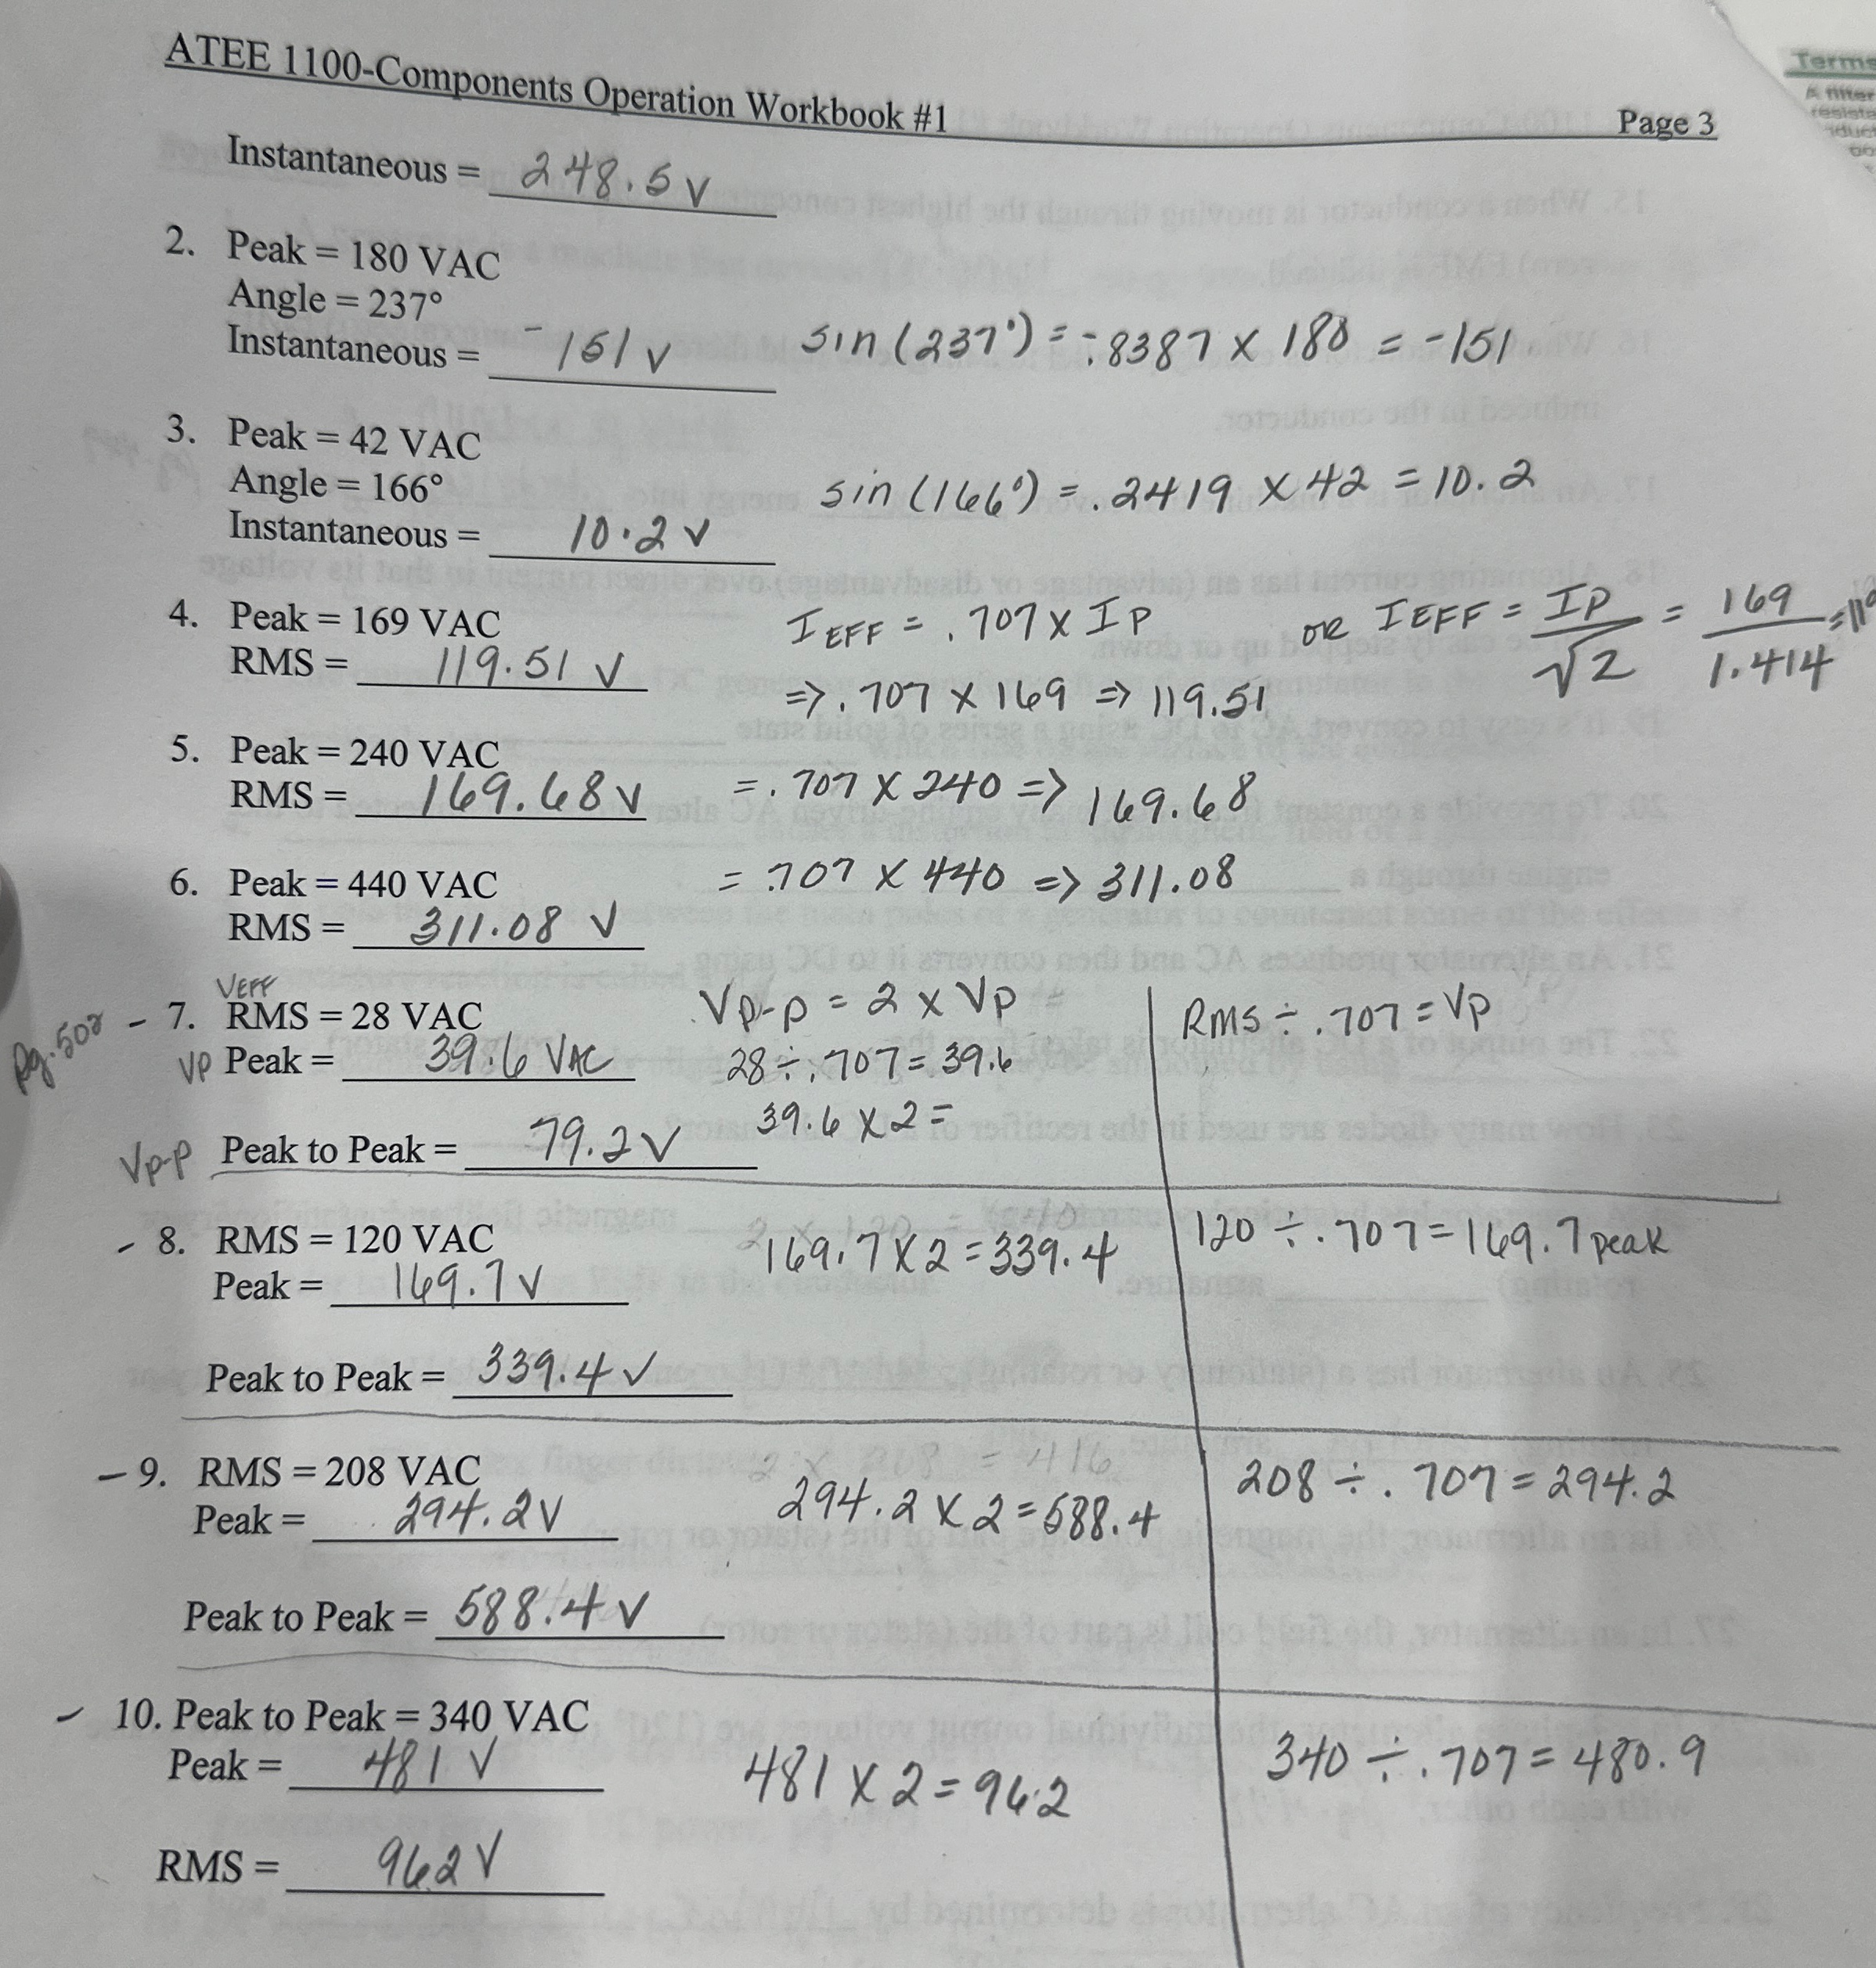 ATEE 1100-Components Operation Workbook #1
Page 3
Terms
A filter
Instantaneous = 248.5 V
2. Peak = 180 VAC
Angle = 237°
Instantaneous = -151 V
sin (237°) = -.8387 x 180 = -151
3. Peak = 42 VAC
Angle = 166°
Instantaneous = 10.2 V
sin (166°) = .2419 x 42 = 10.2
4. Peak = 169 VAC
RMS = 119.51 V
IEFF = .707 x IP
=> .707 x 169 => 119.51
OR IEFF = IP/√2 = 169/1.414 =
5. Peak = 240 VAC
RMS = 169.68 V
= .707 x 240 => 169.68
6. Peak = 440 VAC
RMS = 311.08 V
= .707 x 440 => 311.08
VEFF
pg. 502 - 7. RMS = 28 VAC
VP Peak = 39.6 VAC
Vp-p Peak to Peak = 79.2 V
Vp-p = 2 x Vp
28 ÷ .707 = 39.6
39.6 x 2 =
Rms ÷ .707 = Vp
- 8. RMS = 120 VAC
Peak = 169.7 V
Peak to Peak = 339.4 V
169.7 x 2 = 339.4
120 ÷ .707 = 169.7 peak
- 9. RMS = 208 VAC
Peak = 294.2 V
Peak to Peak = 588.4 V
2 x 208 = 416
294.2 x 2 = 588.4
208 ÷ .707 = 294.2
- 10. Peak to Peak = 340 VAC
Peak = 481 V
RMS = 962 V
481 x 2 = 962
340 ÷ .707 = 480.9